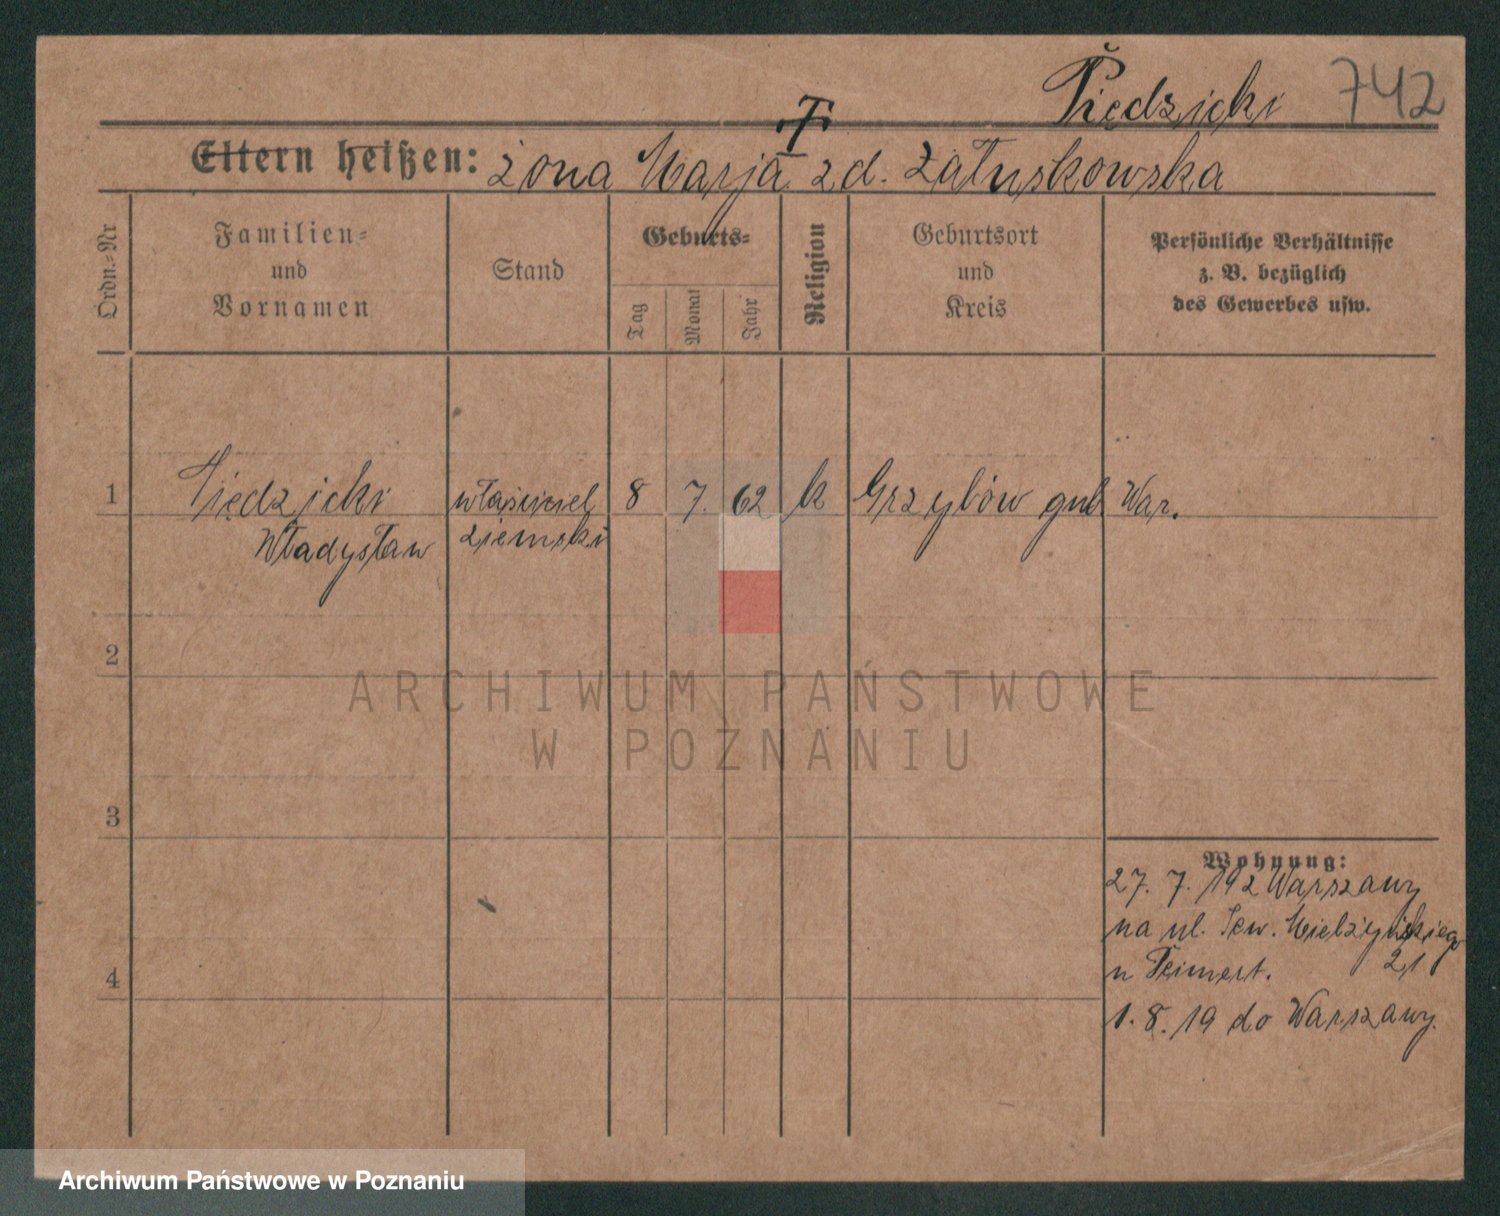 Piędzicki 742
Eltern heißen: żona Marja zd. Załuskowska
Ordn.-Nr
Familien-
und
Vornamen
Stand
Geburts-
Tag
Monat
Jahr
Religion
Geburtsort
und
Kreis
Persönliche Verhältnisse
z. B. bezüglich
des Gewerbes usw.
1 Piędzicki właściciel 8 7. 62 k Grzybów gub War.
Władysław ziemski
2
3
4
Wohnung:
27. 7. 19 z Warszawy
na ul. Sew. Mielżyńskiego
21
u
1. 8. 19 do Warszawy.
ARCHIWUM PAŃSTWOWE
W POZNANIU
Archiwum Państwowe w Poznaniu